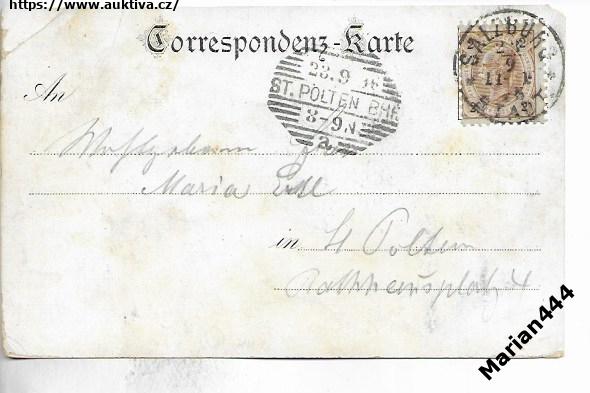 https://www.auktiva.cz/
Correspondenz-Karte
SALZBURG
23.9
ST. PÖLTEN BHF
8-9.N
a
An
Wohlgeboren
Maria
in St Pölten
Rathhausplatz 4
Marian444